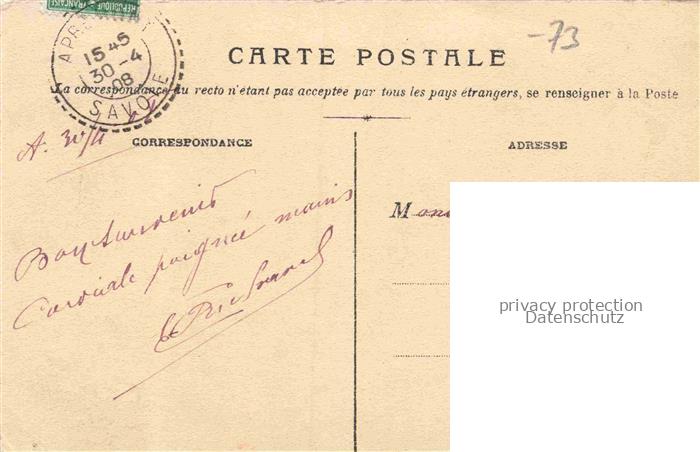 RÉPUBLIQUE FRANÇAISE
APRE
15 45
30 -4
08
SAVOIE
-73
CARTE POSTALE
La correspondance au recto n'étant pas acceptée par tous les pays étrangers, se renseigner à la Poste
A. 30/4
CORRESPONDANCE
ADRESSE
Bon souvenir
Cordiale poignée mains
Mons
privacy protection
Datenschutz